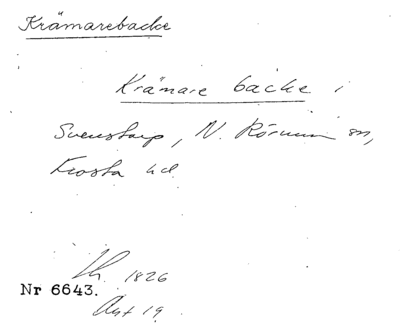 Krämarebacke
Krämare backe i
Svenstorp, N. Rörum sn,
Frosta hd
Lh. 1826
Nr 6643.
Akt 19